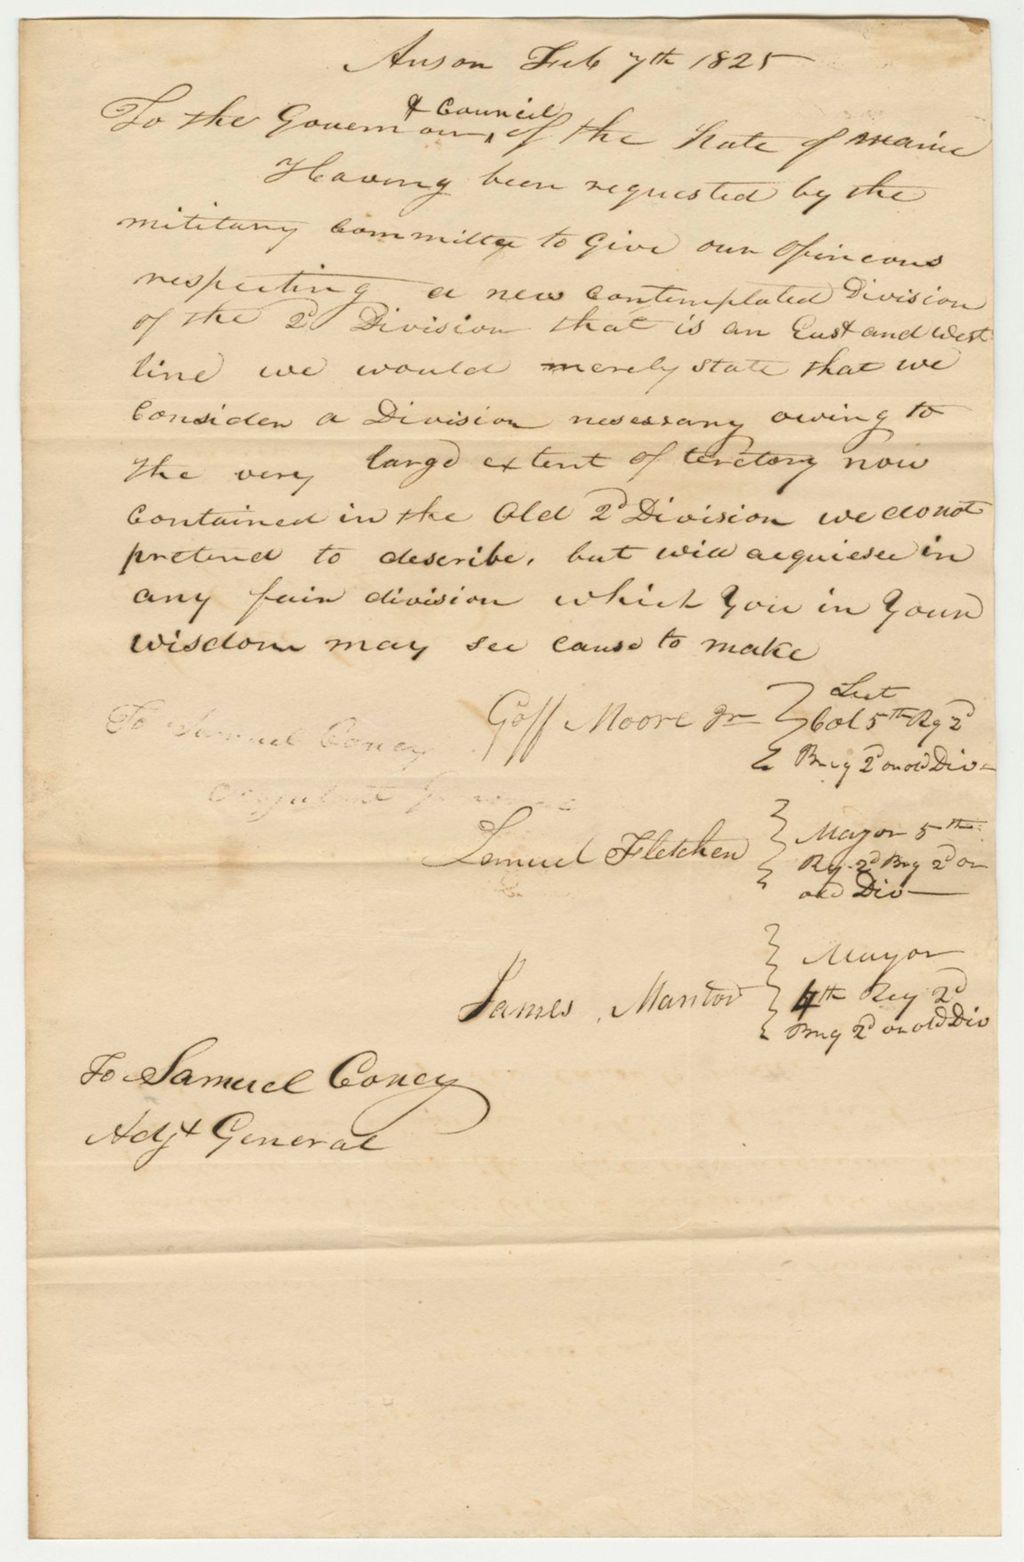 Anson Feb 7th 1825
To the Governour & Council of the State of Maine
Having been requested by the
military Committee to Give our Opineons
respecting a new Contemplated Division
of the 2d Division that is an East and West
line we would merely state that we
Consider a Division nesessary owing to
the very large extent of terctory now
Contained in the Old 2d Division we do not
pretend to describe, but will acquiesee in
any fair division which You in Your
wisdom may see cause to make
Goff Moore Jr Lieut
Col 5th Reg 2d
Brig 2d or old Div
To Samuel Coney
Adjutant General
Samuel Fletcher Mayor 5th
Reg 2d Brig 2d or
old Div
James Mantor Mayor
4th Reg 2d
Brig 2d or old Div
To Samuel Coney
Adjt General